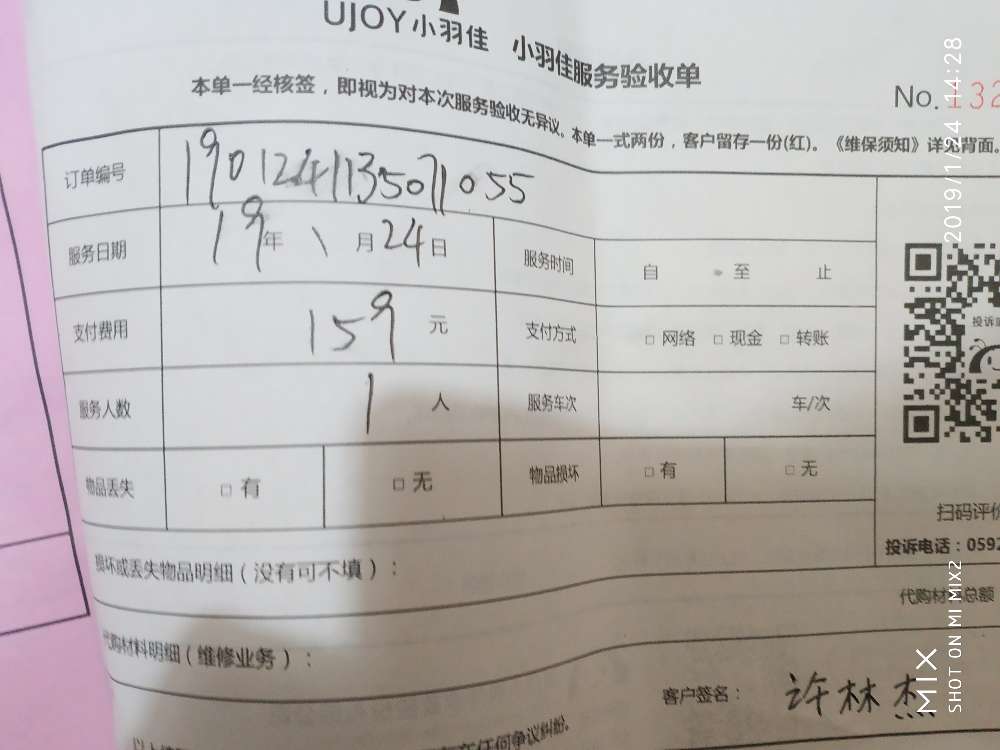 UJOY小羽佳 小羽佳服务验收单
No.132
本单一经核签，即视为对本次服务验收无异议。本单一式两份，客户留存一份(红)。《维保须知》详见背面。
订单编号 1901241135071055
服务日期 19年1月24日 服务时间 自 至 止
支付费用 159元 支付方式 □网络 □现金 □转账
服务人数 1人 服务车次 车/次
物品丢失 □有 □无 物品损坏 □有 □无
投诉
扫码评价
投诉电话：0592
损坏或丢失物品明细（没有可不填）：
代购材 总额
代购材料明细（维修业务）：
客户签名：许林杰
任何争议纠纷。
2019/1/24 14:28
MIX
SHOT ON MI MIX2